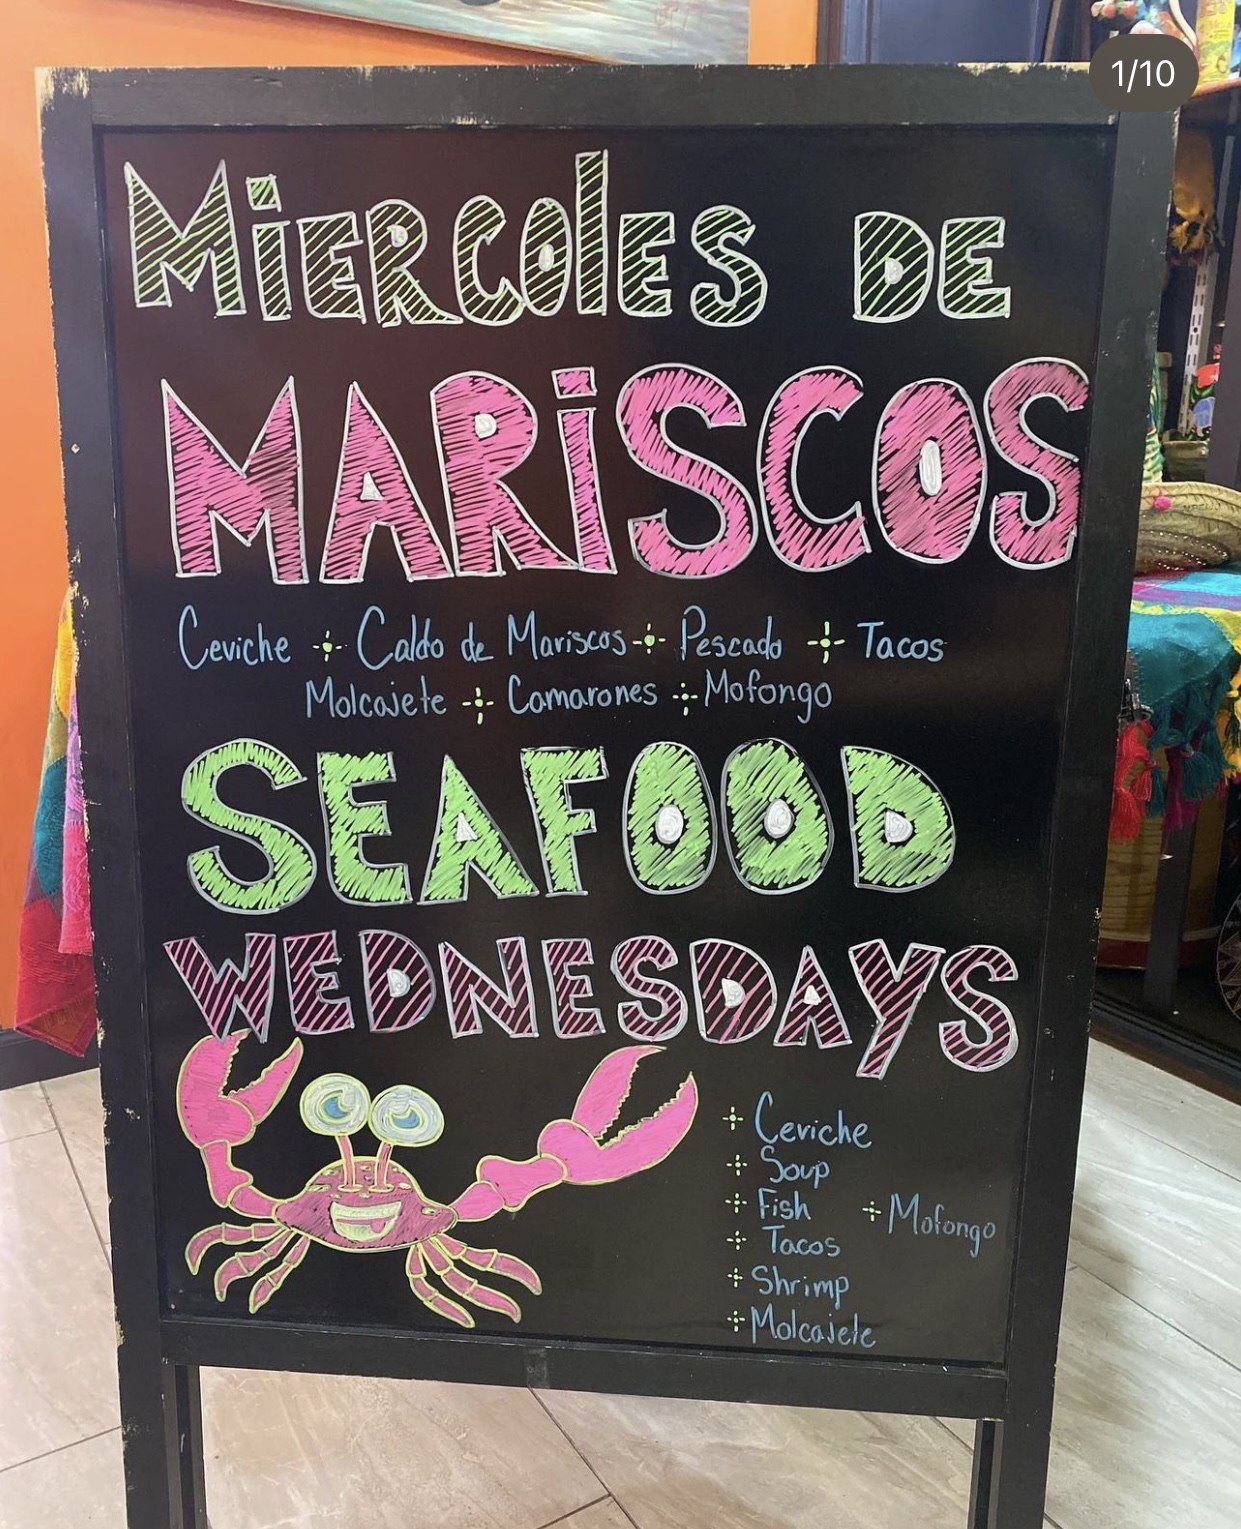 1/10
MiERColES DE
MARiSCOS
Ceviche Caldo de Mariscos Pescado Tacos
Molcajete Camarones Mofongo
SEAFOOD
WEDNESDAYS
Ceviche
Soup
Fish Mofongo
Tacos
Shrimp
Molcajete